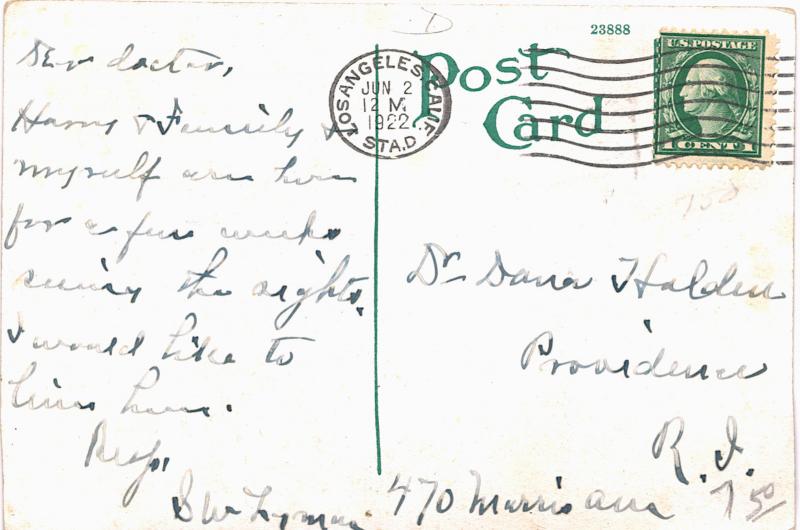 Dear doctor,
Harry & Family &
myself are here
for a few weeks
seeing the sights.
I would like to
live here.
Resp.
S W Lyman
23888
Post
Card
LOS ANGELES, CALIF.
JUN 2
12 M
1922
STA. D
U.S. POSTAGE
1 CENT 1
D
750
Dr Dana Holden
Providence
R. I.
470 Morris ave
7 50/